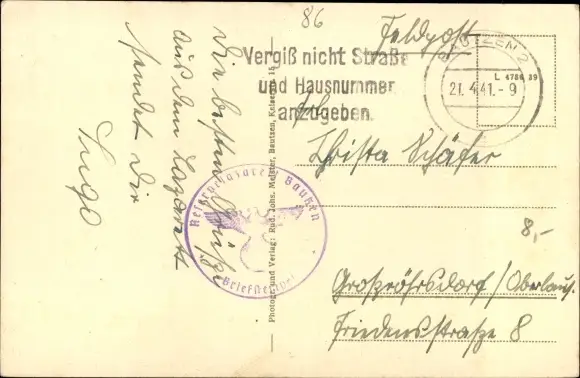 86
Feldpost
Vergiß nicht Straße
und Hausnummer
anzugeben.
BAUTZEN 2
21.4.41.-9
L 4786 39
Christa Schäfer
8,-
Großröhrsdorf/Oberlaus.
Friedensstraße 8
Die besten Grüße
aus dem Lazarett
sendet Dir
Ingo
Reservelazarett Bautzen
Briefstempel
Photogr. und Verlag: Rud. Johs. Meister, Bautzen, Kaiserstr. 15